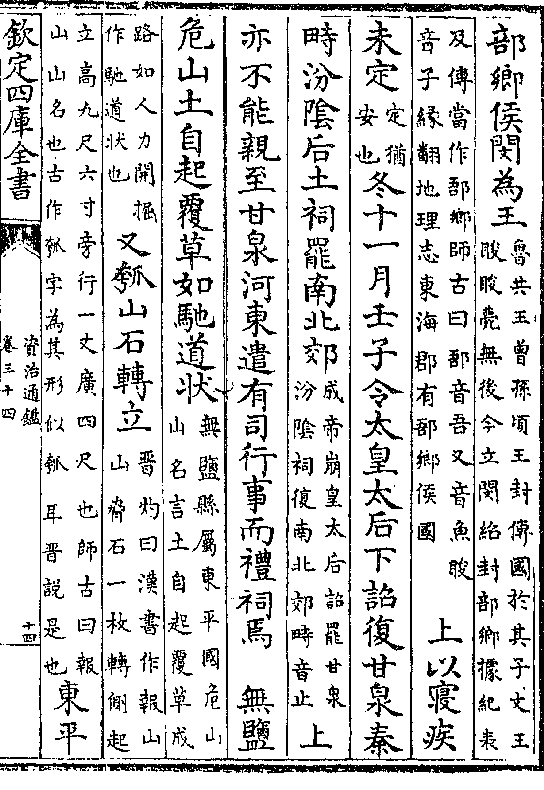 部鄉侯閔為王魯共王曾孫頃王封傳國於其子文王睃睃薨無後今立閔紹封部鄉據紀表
及傳當作郚鄉師古曰郚音吾又音魚睃音子緣翻地理志東海郡有郚鄉侯國 上以寢疾
未定定猶安也冬十一月壬子令太皇太后下詔復甘泉泰
畤汾陰后土祠罷南北郊成帝崩皇太后詔罷甘泉汾陰祠復南北郊畤音止 上
亦不能親至甘泉河東遣有司行事而禮祠焉 無鹽
危山土自起覆草如馳道狀無鹽縣屬東平國危山山名言土自起覆草成
路如人力開掘作馳道狀也又瓠山石轉立晉灼曰漢書作報山山脅石一枚轉側起
立高九尺六寸旁行一丈廣四尺也師古曰報山山名也古作瓠字為其形似瓠耳晉說是也東平
欽定四庫全書
資治通鑑
卷三十四
十四